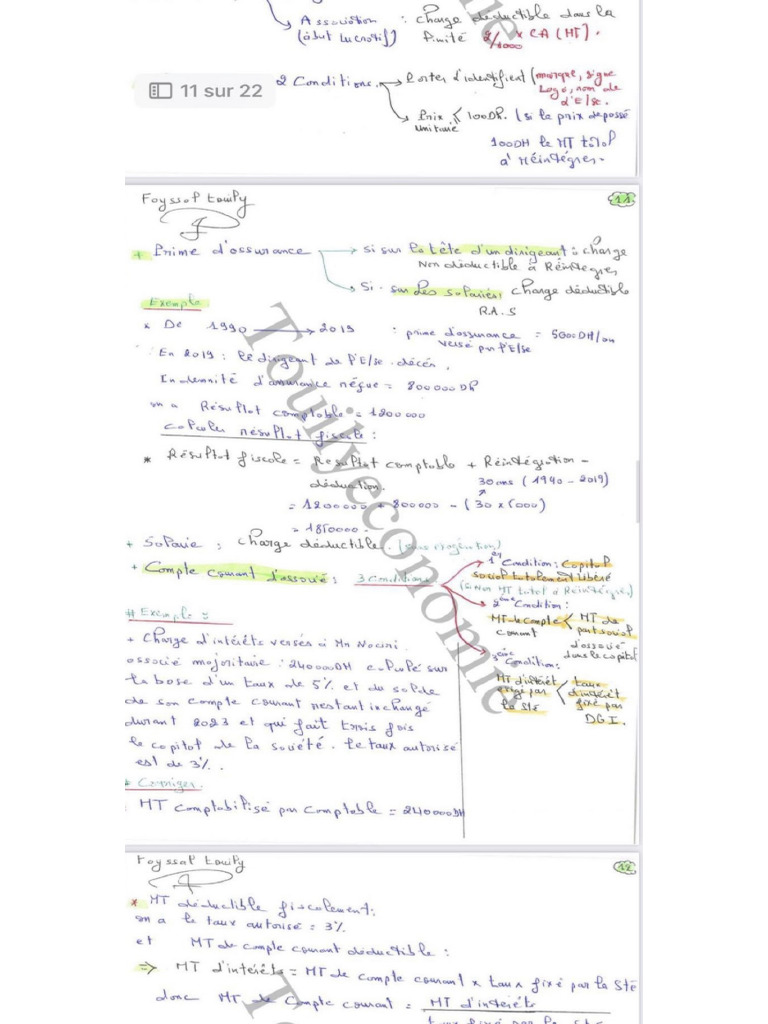 Association : charge déductible dans la
(à but lucratif) limité 2/1000 x CA (HT).
11 sur 22
2 Conditions. Porter d'identifient (marque, sigle
Logo, nom de
d'E/se.
Prix unitaire ≤ 100DH. (si le prix depassé
100DH le MT total
à réintégrer.
Fayssal touily
11
+ Prime d'assurance → si sur la tête d'un dirigeant : charge
Non déductible à Réintégrer
Si sur les salariés, charge déductible
R.A.S
Exemple
* De 1990 → 2019 : prime d'assurance = 5000DH/an
versé par l'E/se
En 2019 : le dirigeant de l'E/se décér.
Indemnité d'assurance réçue = 800000DH
on a Résultat comptable = 1200000
calculer résultat fiscale :
* Résultat fiscale = Resultat comptable + Réintégration -
déduction. 30 ans (1990 - 2019)
= 1200000 + 800000 - (30 x 5000)
= 1850000.
+ Salaire : charge déductible.
+ Compte courant d'associé : 3 conditions
1ère Condition : Capital
social totalement libéré
(si Non MT total à Réintégrer)
2ème Condition :
MT de compte courant < MT de part social d'associé dans le capital
3ème Condition :
MT d'intérêt exigé par la Sté < taux d'intérêt fixé par DGI.
# Exemple :
+ Charge d'intérêts versés à Mr Naciri
associé majoritaire : 240000DH calculé sur
la base d'un taux de 5% et du solde
de son compte courant restant inchangé
durant 2023 et qui fait trois fois
le capital de la société. le taux autorisé
est de 3%.
* Corriger.
MT comptabilisé par comptable = 240000DH
Fayssal touily
12
* MT déductible fiscalement :
on a le taux autorisé = 3%
et MT de compte courant déductible :
⇒ MT d'intérêts = MT de compte courant x taux fixé par la Sté
donc MT de Compte courant = MT d'intérêts
taux fixé par la Sté
Touilyeconomie